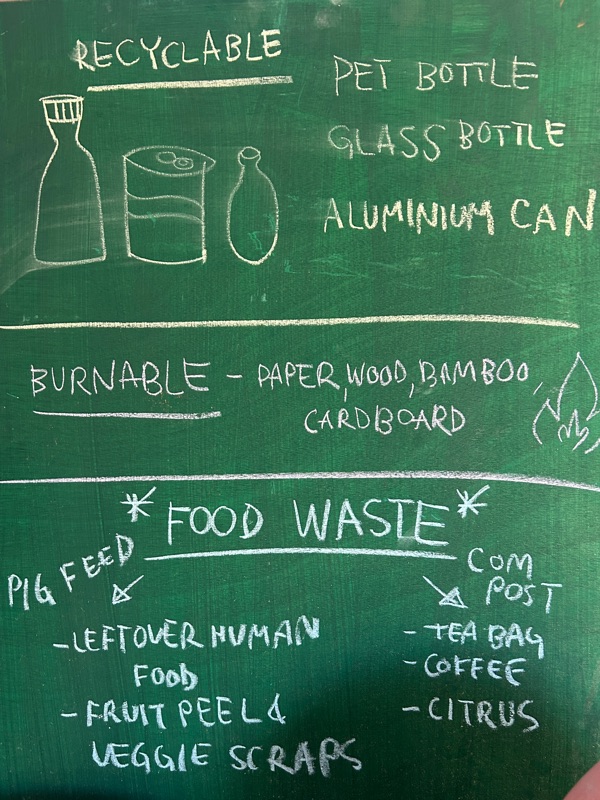 RECYCLABLE
PET BOTTLE
GLASS BOTTLE
ALUMINIUM CAN
BURNABLE - PAPER, WOOD, BAMBOO,
CARDBOARD
* FOOD WASTE *
PIG FEED
- LEFTOVER HUMAN
FOOD
- FRUIT PEEL &
VEGGIE SCRAPS
COM
POST
- TEA BAG
- COFFEE
- CITRUS